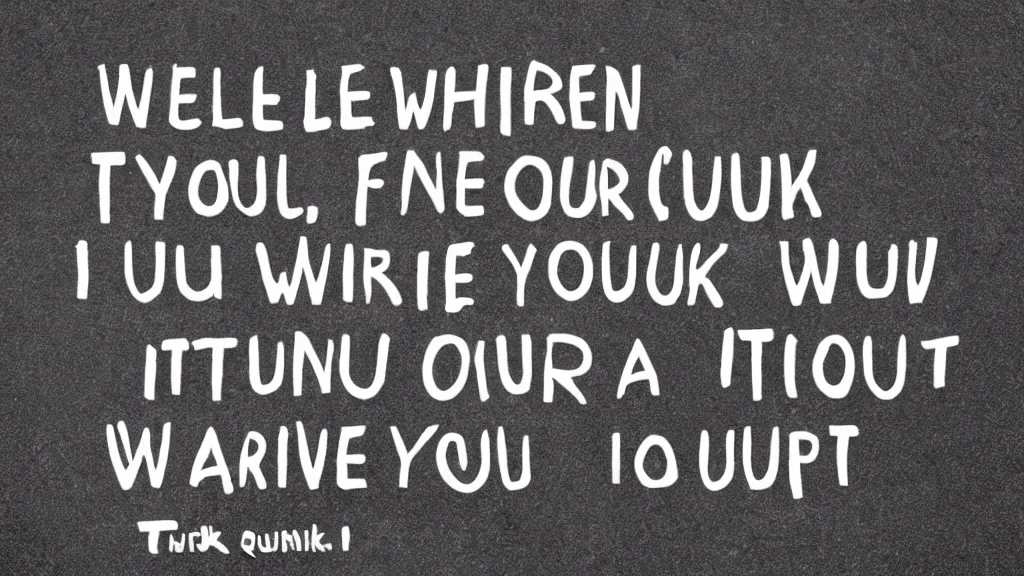 WELELEWHIREN
TYOUL, FNEOURCUUK
I UU WIRIE YOUUK WUV
ITTUNU OIUR A ITIOUT
WARIVE YOUU IO UUPT
TIRJK QUMIK. I